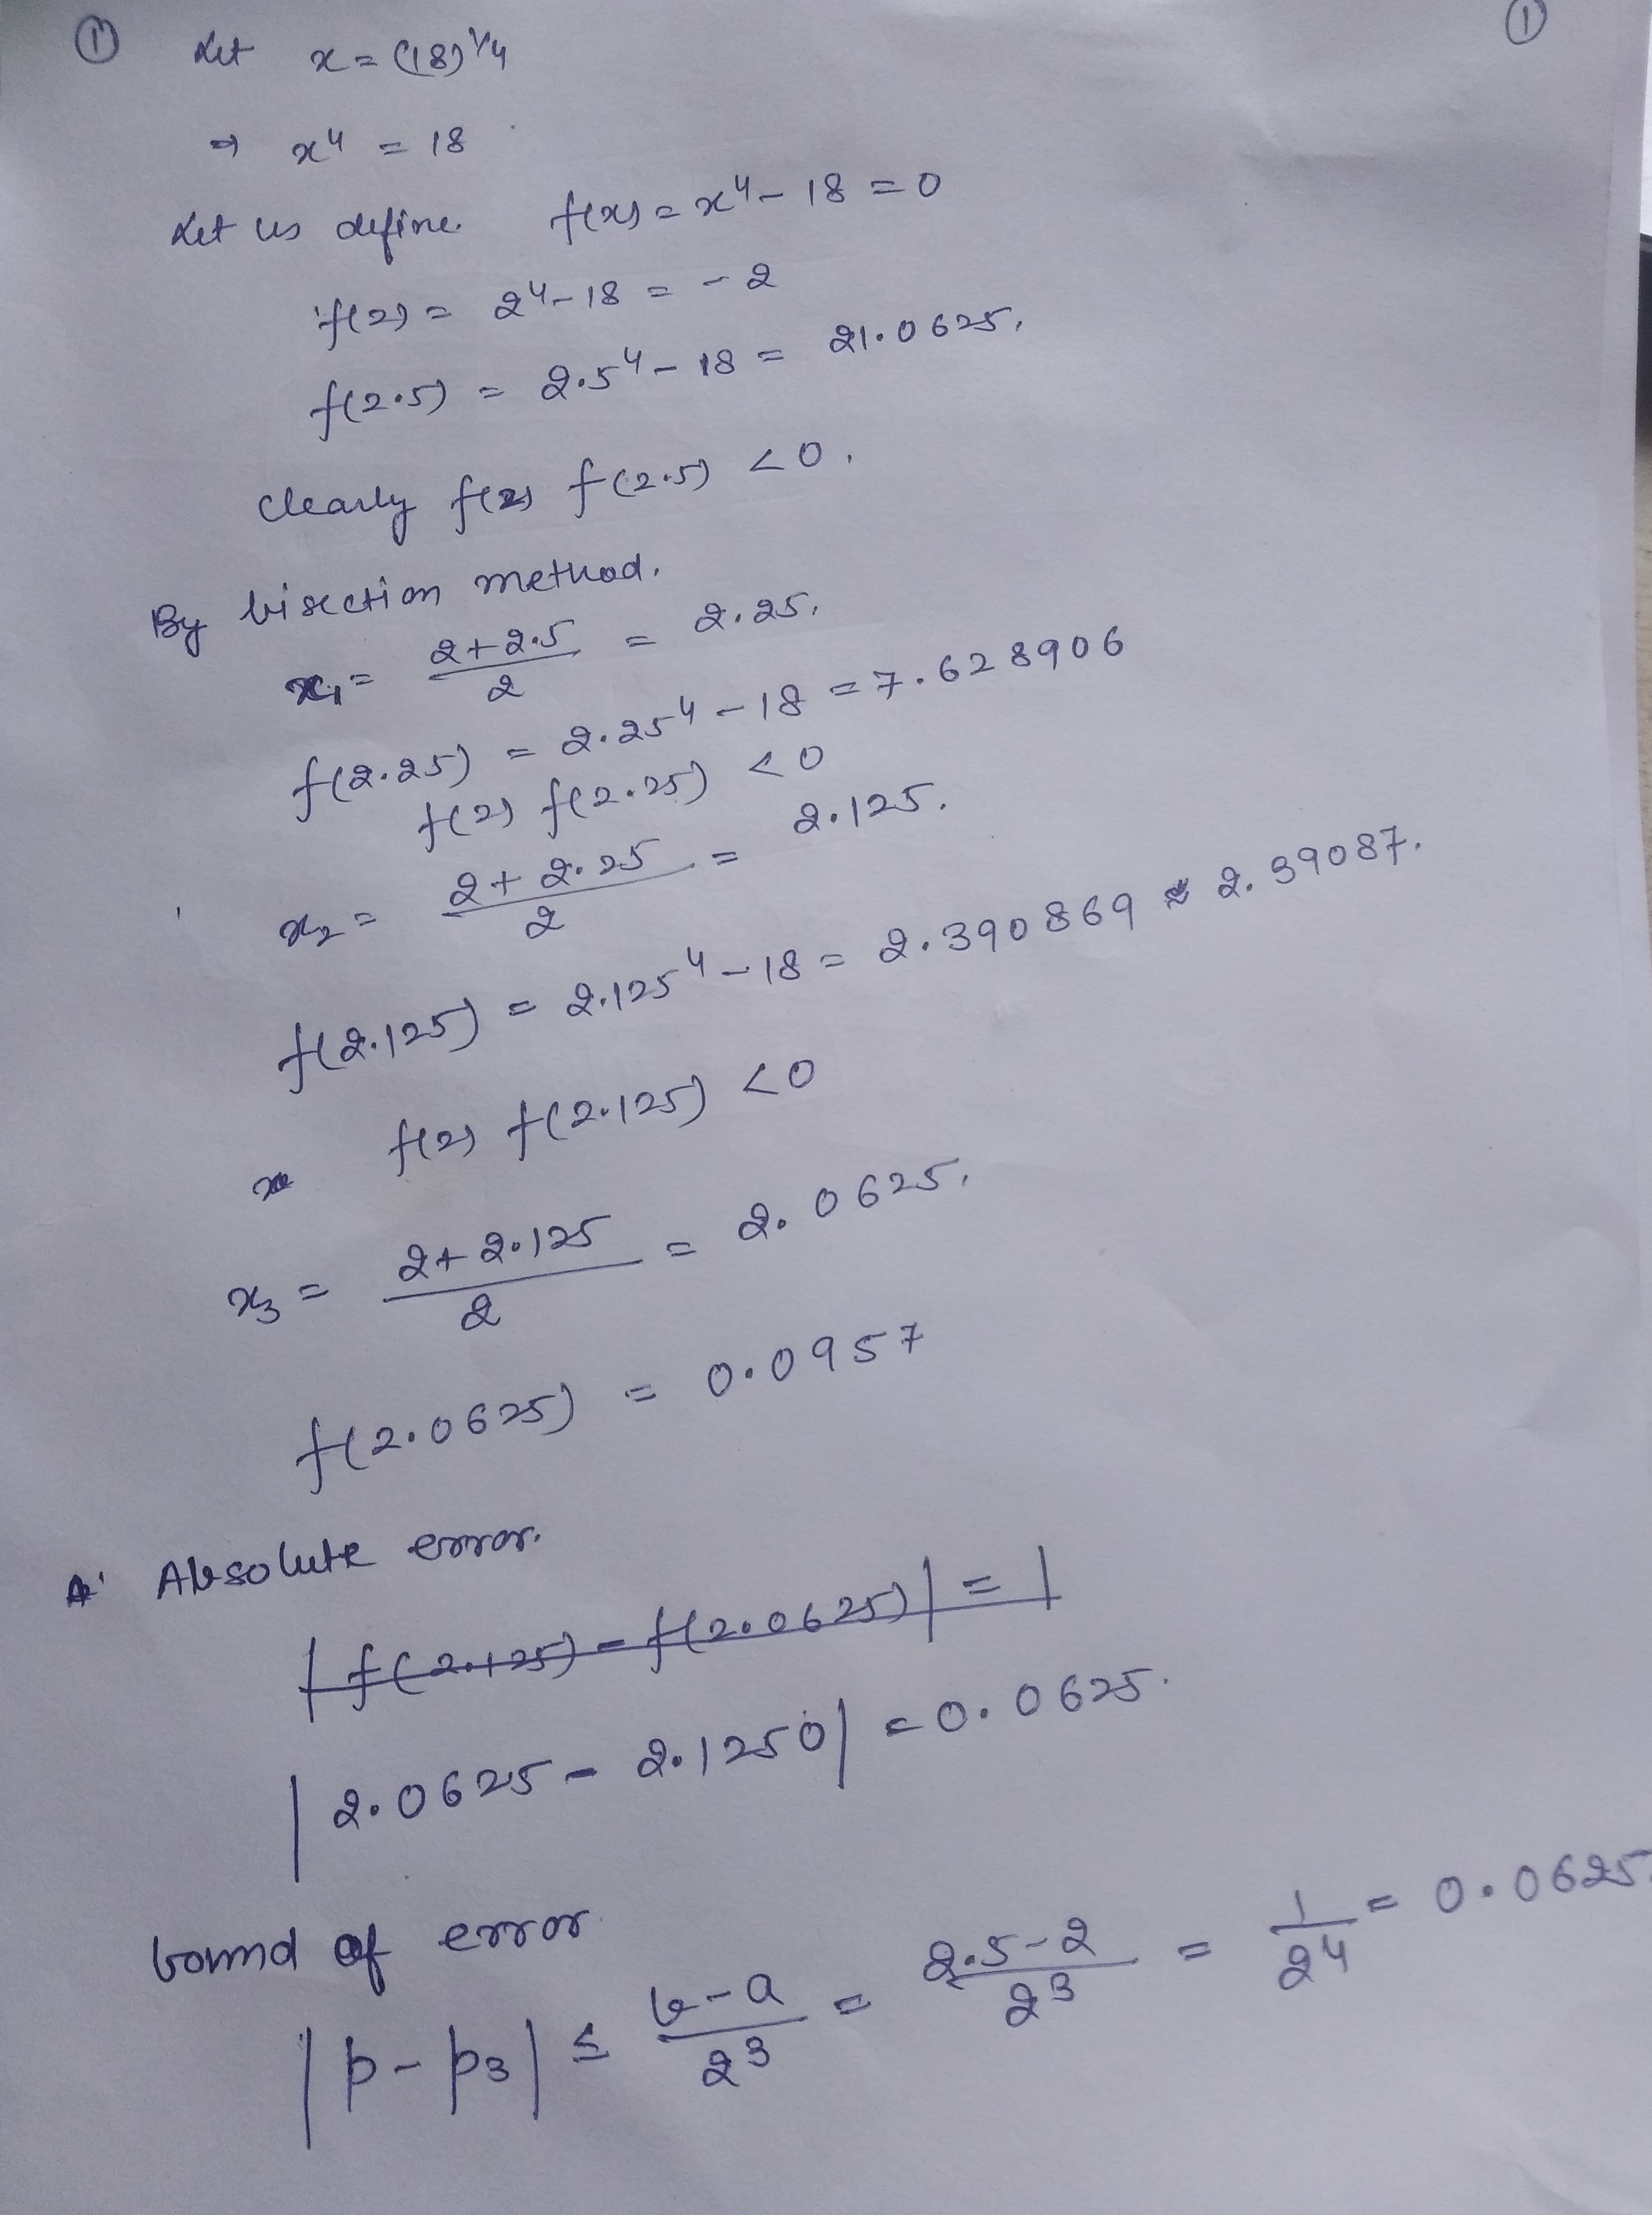 ① Let x = (18)^1/4 ①
⇒ x⁴ = 18
Let us define f(x) = x⁴ - 18 = 0
f(2) = 2⁴ - 18 = -2
f(2.5) = 2.5⁴ - 18 = 21.0625.
Clearly f(2) f(2.5) < 0.
By bisection method.
x₁ = (2 + 2.5)/2 = 2.25.
f(2.25) = 2.25⁴ - 18 = 7.628906
f(2) f(2.25) < 0
x₂ = (2 + 2.25)/2 = 2.125.
f(2.125) = 2.125⁴ - 18 = 2.390869 ≈ 2.39087.
f(2) f(2.125) < 0
x₃ = (2 + 2.125)/2 = 2.0625.
f(2.0625) = 0.0957
Absolute error.
|f(2.125) - f(2.0625)| = |
|2.0625 - 2.1250| = 0.0625.
bound of error
|p - p₃| ≤ (b - a)/2³ = (2.5 - 2)/2³ = 1/2⁴ = 0.0625.